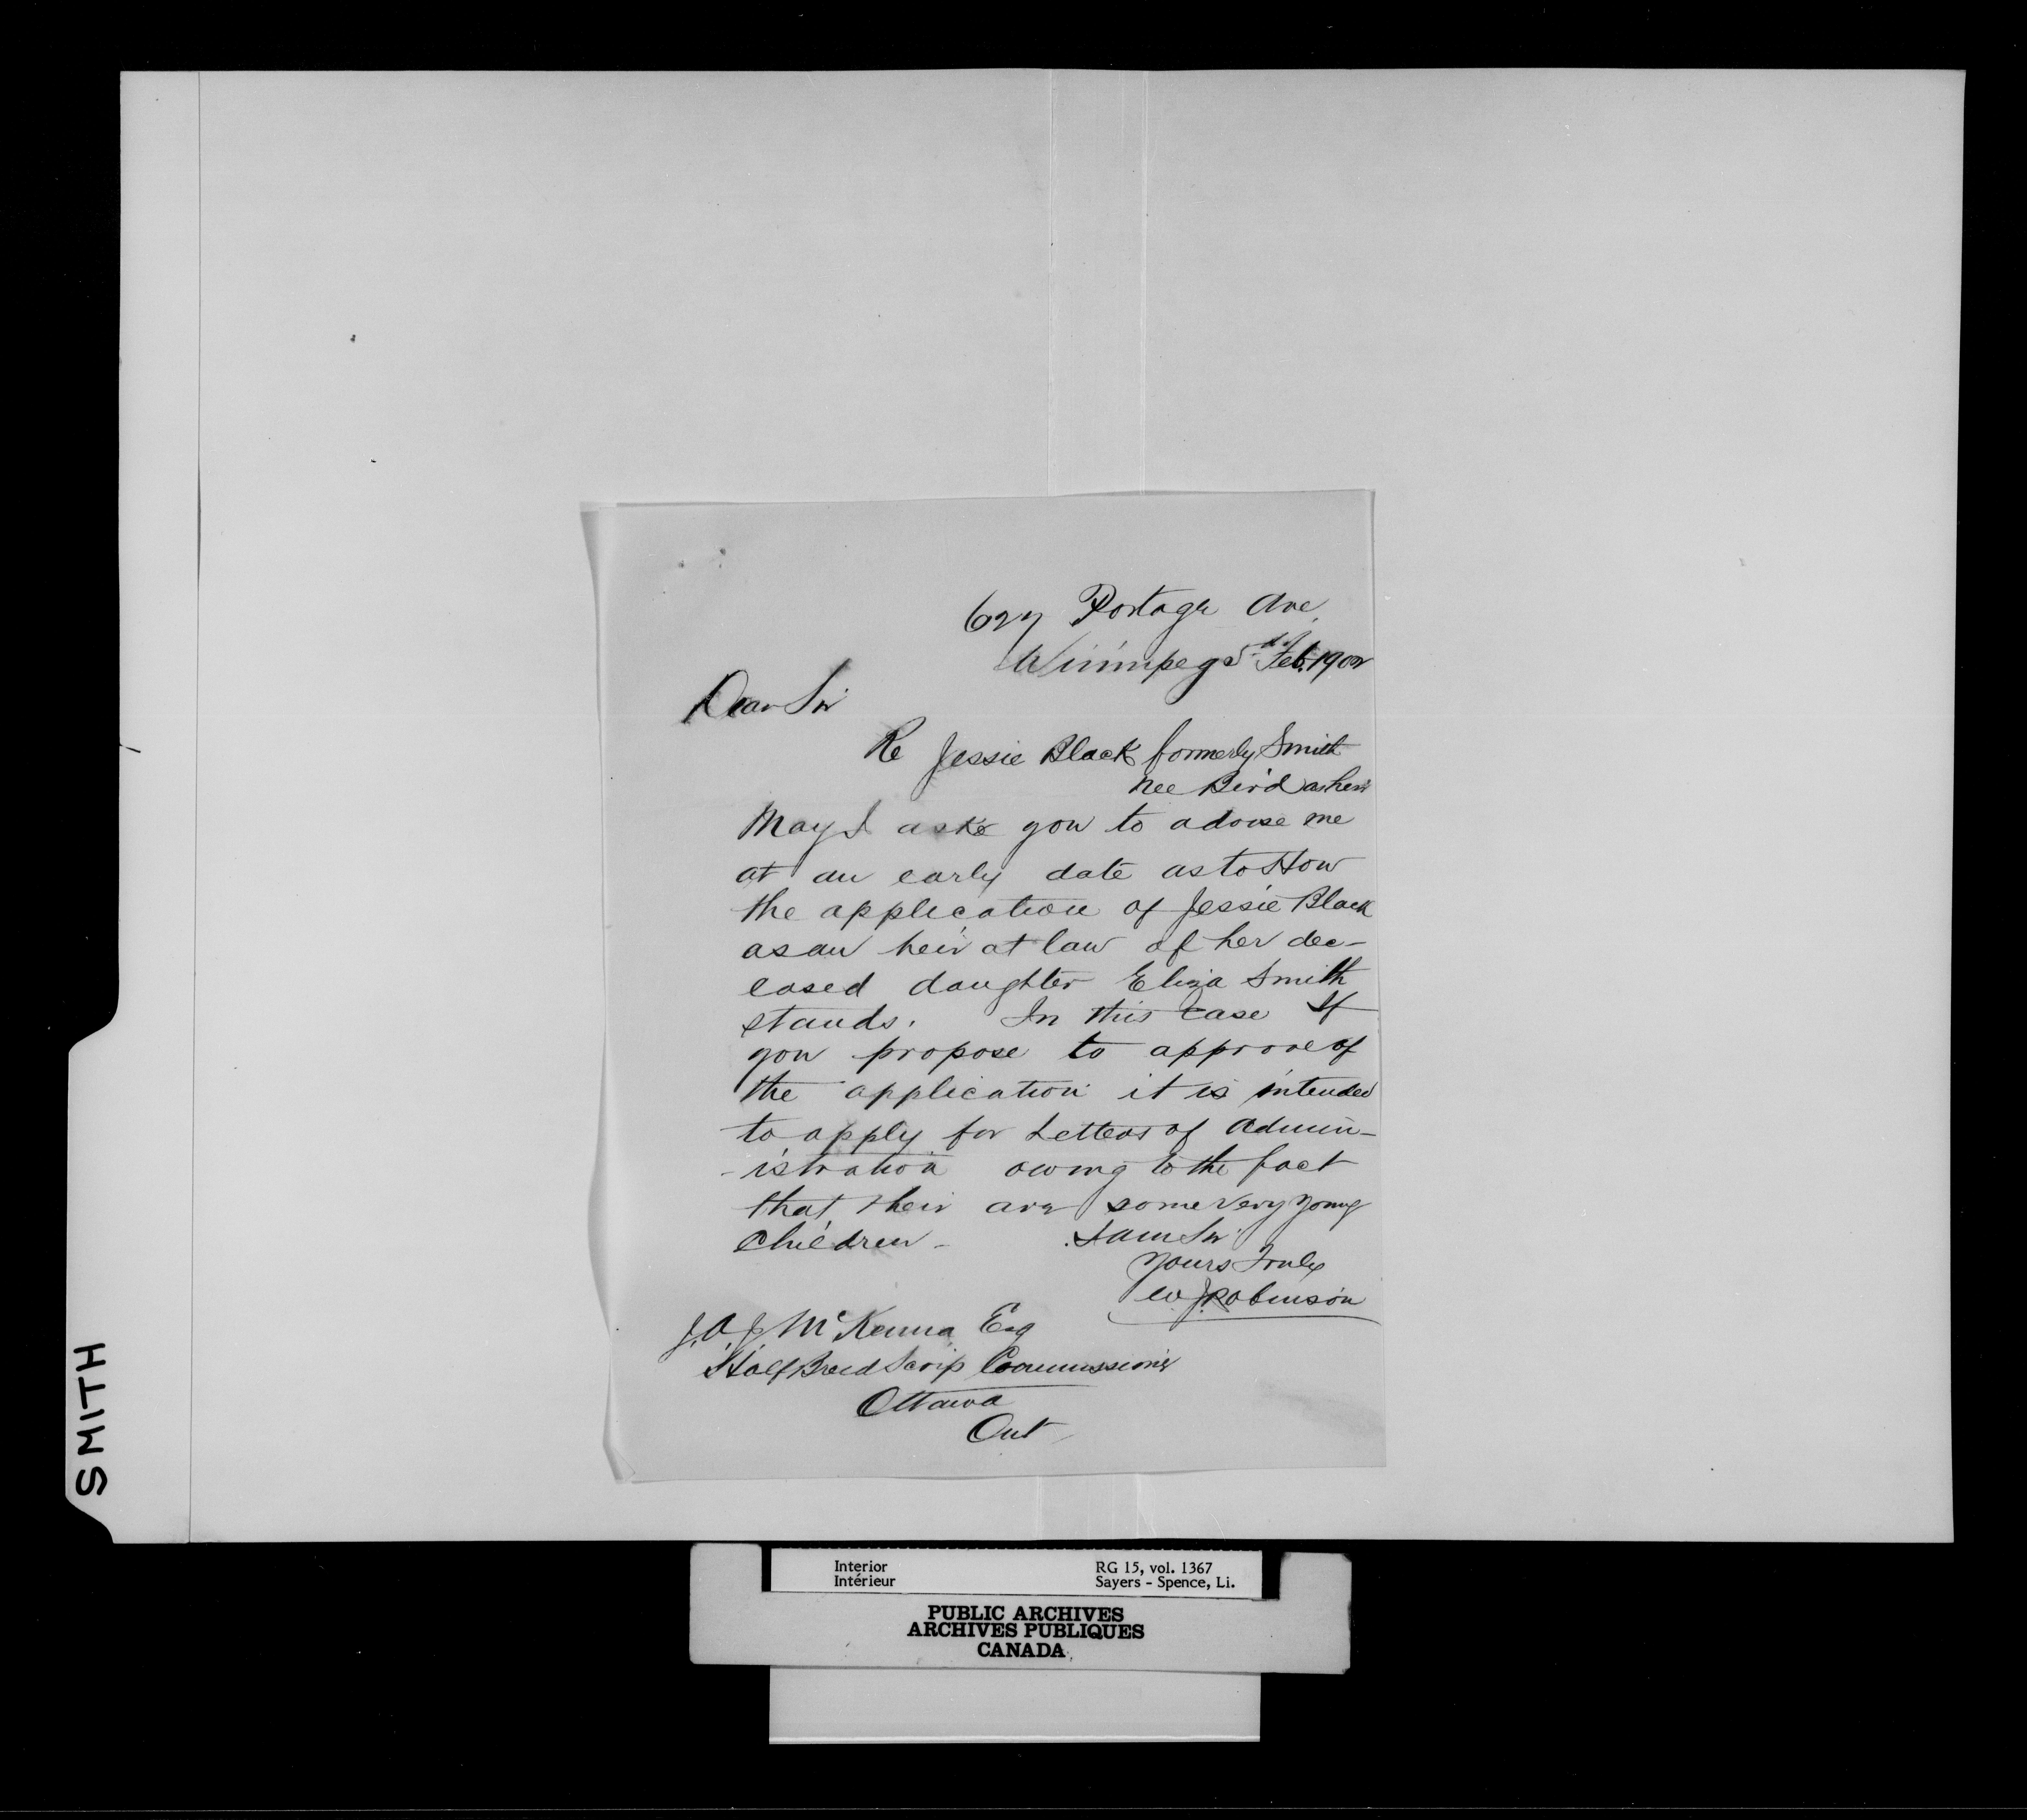 627 Portage Ave.
Winnipeg 5th Feb. 1902
Dear Sir
Re Jessie Black formerly Smith
nee Bird as heir
May I ask you to advise me
at an early date as to How
the application of Jessie Black
as an heir at law of her dec-
eased daughter Eliza Smith
stands. In this case If
you propose to approve of
the application it is intended
to apply for Letters of Admin-
-istration owing to the fact
that their are some very young
Children - I am Sir
Yours Truly
W J Robinson
J. A. J. McKenna Esq
Half Breed Scrip Commissioner
Ottawa
Ont
SMITH
Interior RG 15, vol. 1367
Intérieur Sayers - Spence, Li.
PUBLIC ARCHIVES
ARCHIVES PUBLIQUES
CANADA